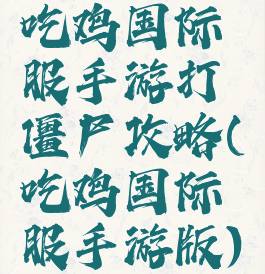 吃鸡国际
服手游打
僵尸攻略(
吃鸡国际
服手游版)